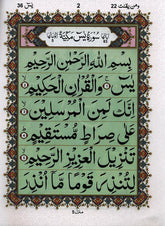 يٰسٓ 36 2 ومن يقنت 22
سُوْرَةُ يٰسٓ مَكِّيَّةٌ
بِسْمِ اللهِ الرَّحْمٰنِ الرَّحِيْمِ
يٰسٓ وَالْقُرْاٰنِ الْحَكِيْمِ
اِنَّكَ لَمِنَ الْمُرْسَلِيْنَ
عَلٰى صِرَاطٍ مُّسْتَقِيْمٍ
تَنْزِيْلَ الْعَزِيْزِ الرَّحِيْمِ
لِتُنْذِرَ قَوْمًا مَّاۤ اُنْذِرَ